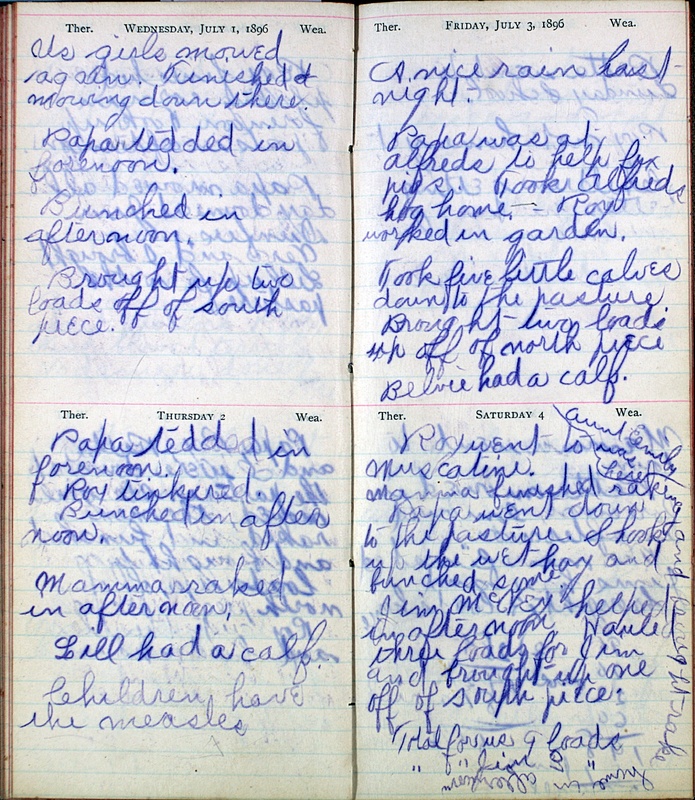 Ther. WEDNESDAY, JULY 1, 1896 Wea.
Us girls mowed
again. Finished
mowing down there.
Papa tedded in
forenoon.
Bunched in
afternoon.
Brought up two
loads off of south
piece.
Ther. THURSDAY 2 Wea.
Papa tedded in
forenoon.
Roy tinkered.
Bunched in after
noon.
Mamma raked
in afternoon.
Lill had a calf.
Children have
the measles
Ther. FRIDAY, JULY 3, 1896 Wea.
A nice rain last
night.
Papa was at
Alfreds to help fix
pigs. Took Alfreds
hog home. - Roy
worked in garden.
Took five little calves
down to the pasture
Brought two loads
up off of north piece
Belvie had a calf.
Ther. SATURDAY 4 Wea.
Roy went to
Muscatine.
Aunt Emily
mamma finished raking
and brought rake
Papa went down
to the pasture. Shook
up the wet hay and
bunched some.
Jim McKey helped
in afternoon Hauled
three loads for Jim
and brought up one
off of south piece.
Total for us 9 loads
" " Jim